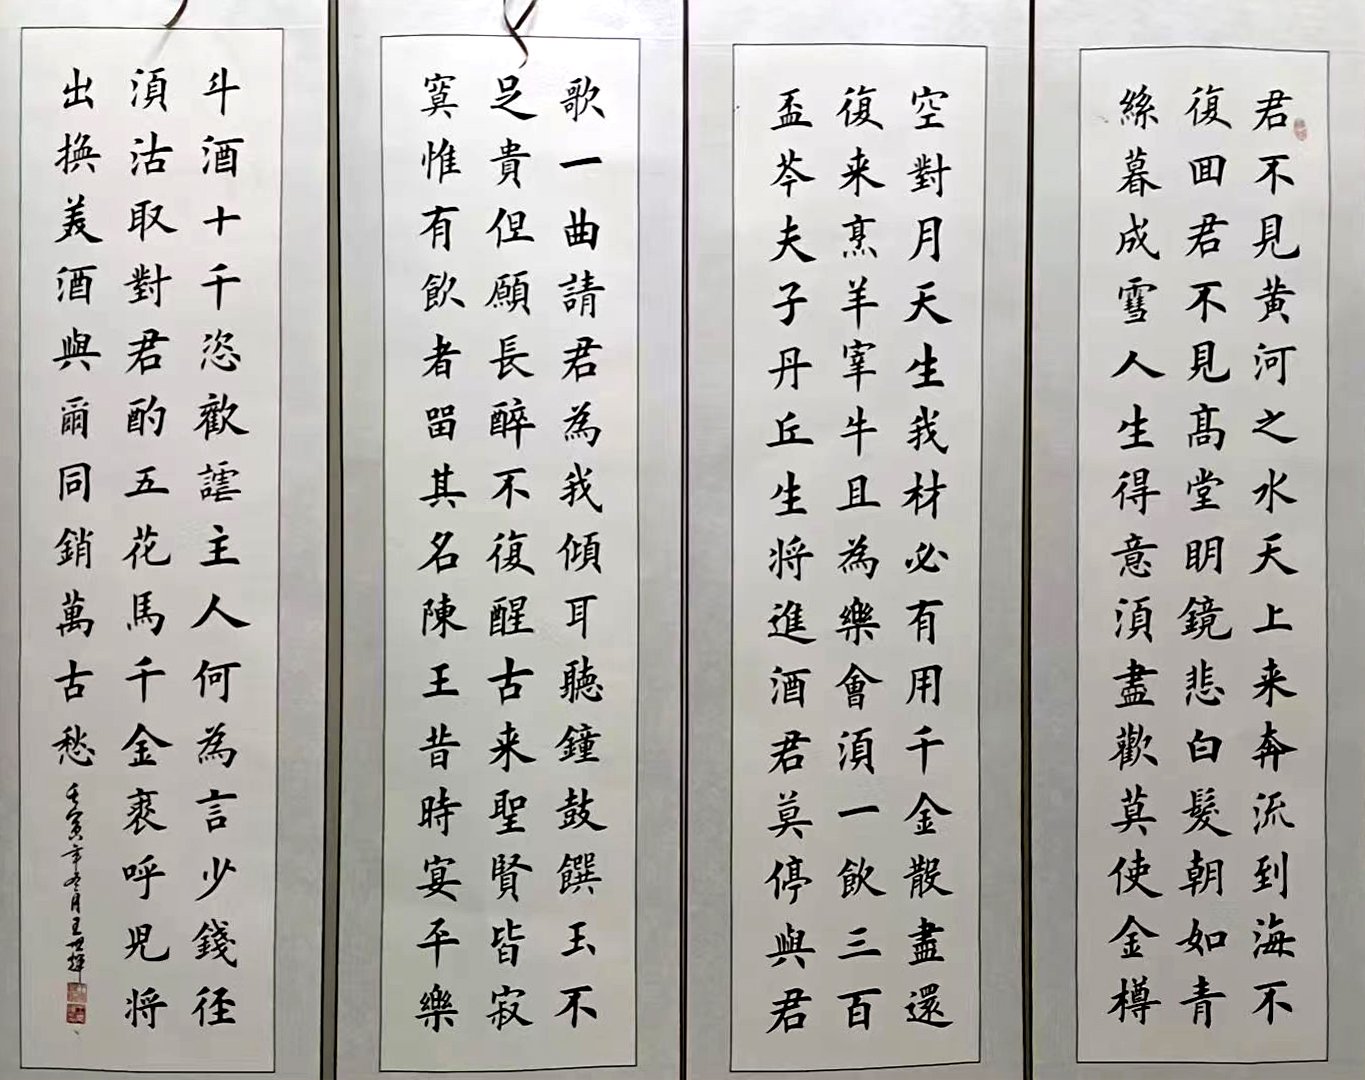 君不見黄河之水天上来奔流到海不
復回君不見高堂明鏡悲白髮朝如青
絲暮成雪人生得意須盡歡莫使金樽
空對月天生我材必有用千金散盡還
復来烹羊宰牛且為樂會須一飲三百
盃岑夫子丹丘生将進酒君莫停與君
歌一曲請君為我傾耳聽鐘鼓饌玉不
足貴但願長醉不復醒古来聖賢皆寂
寞惟有飲者留其名陳王昔時宴平樂
斗酒十千恣歡謔主人何為言少錢径
須沽取對君酌五花馬千金裘呼児将
出換美酒與爾同銷萬古愁
壬寅年冬月王世輝